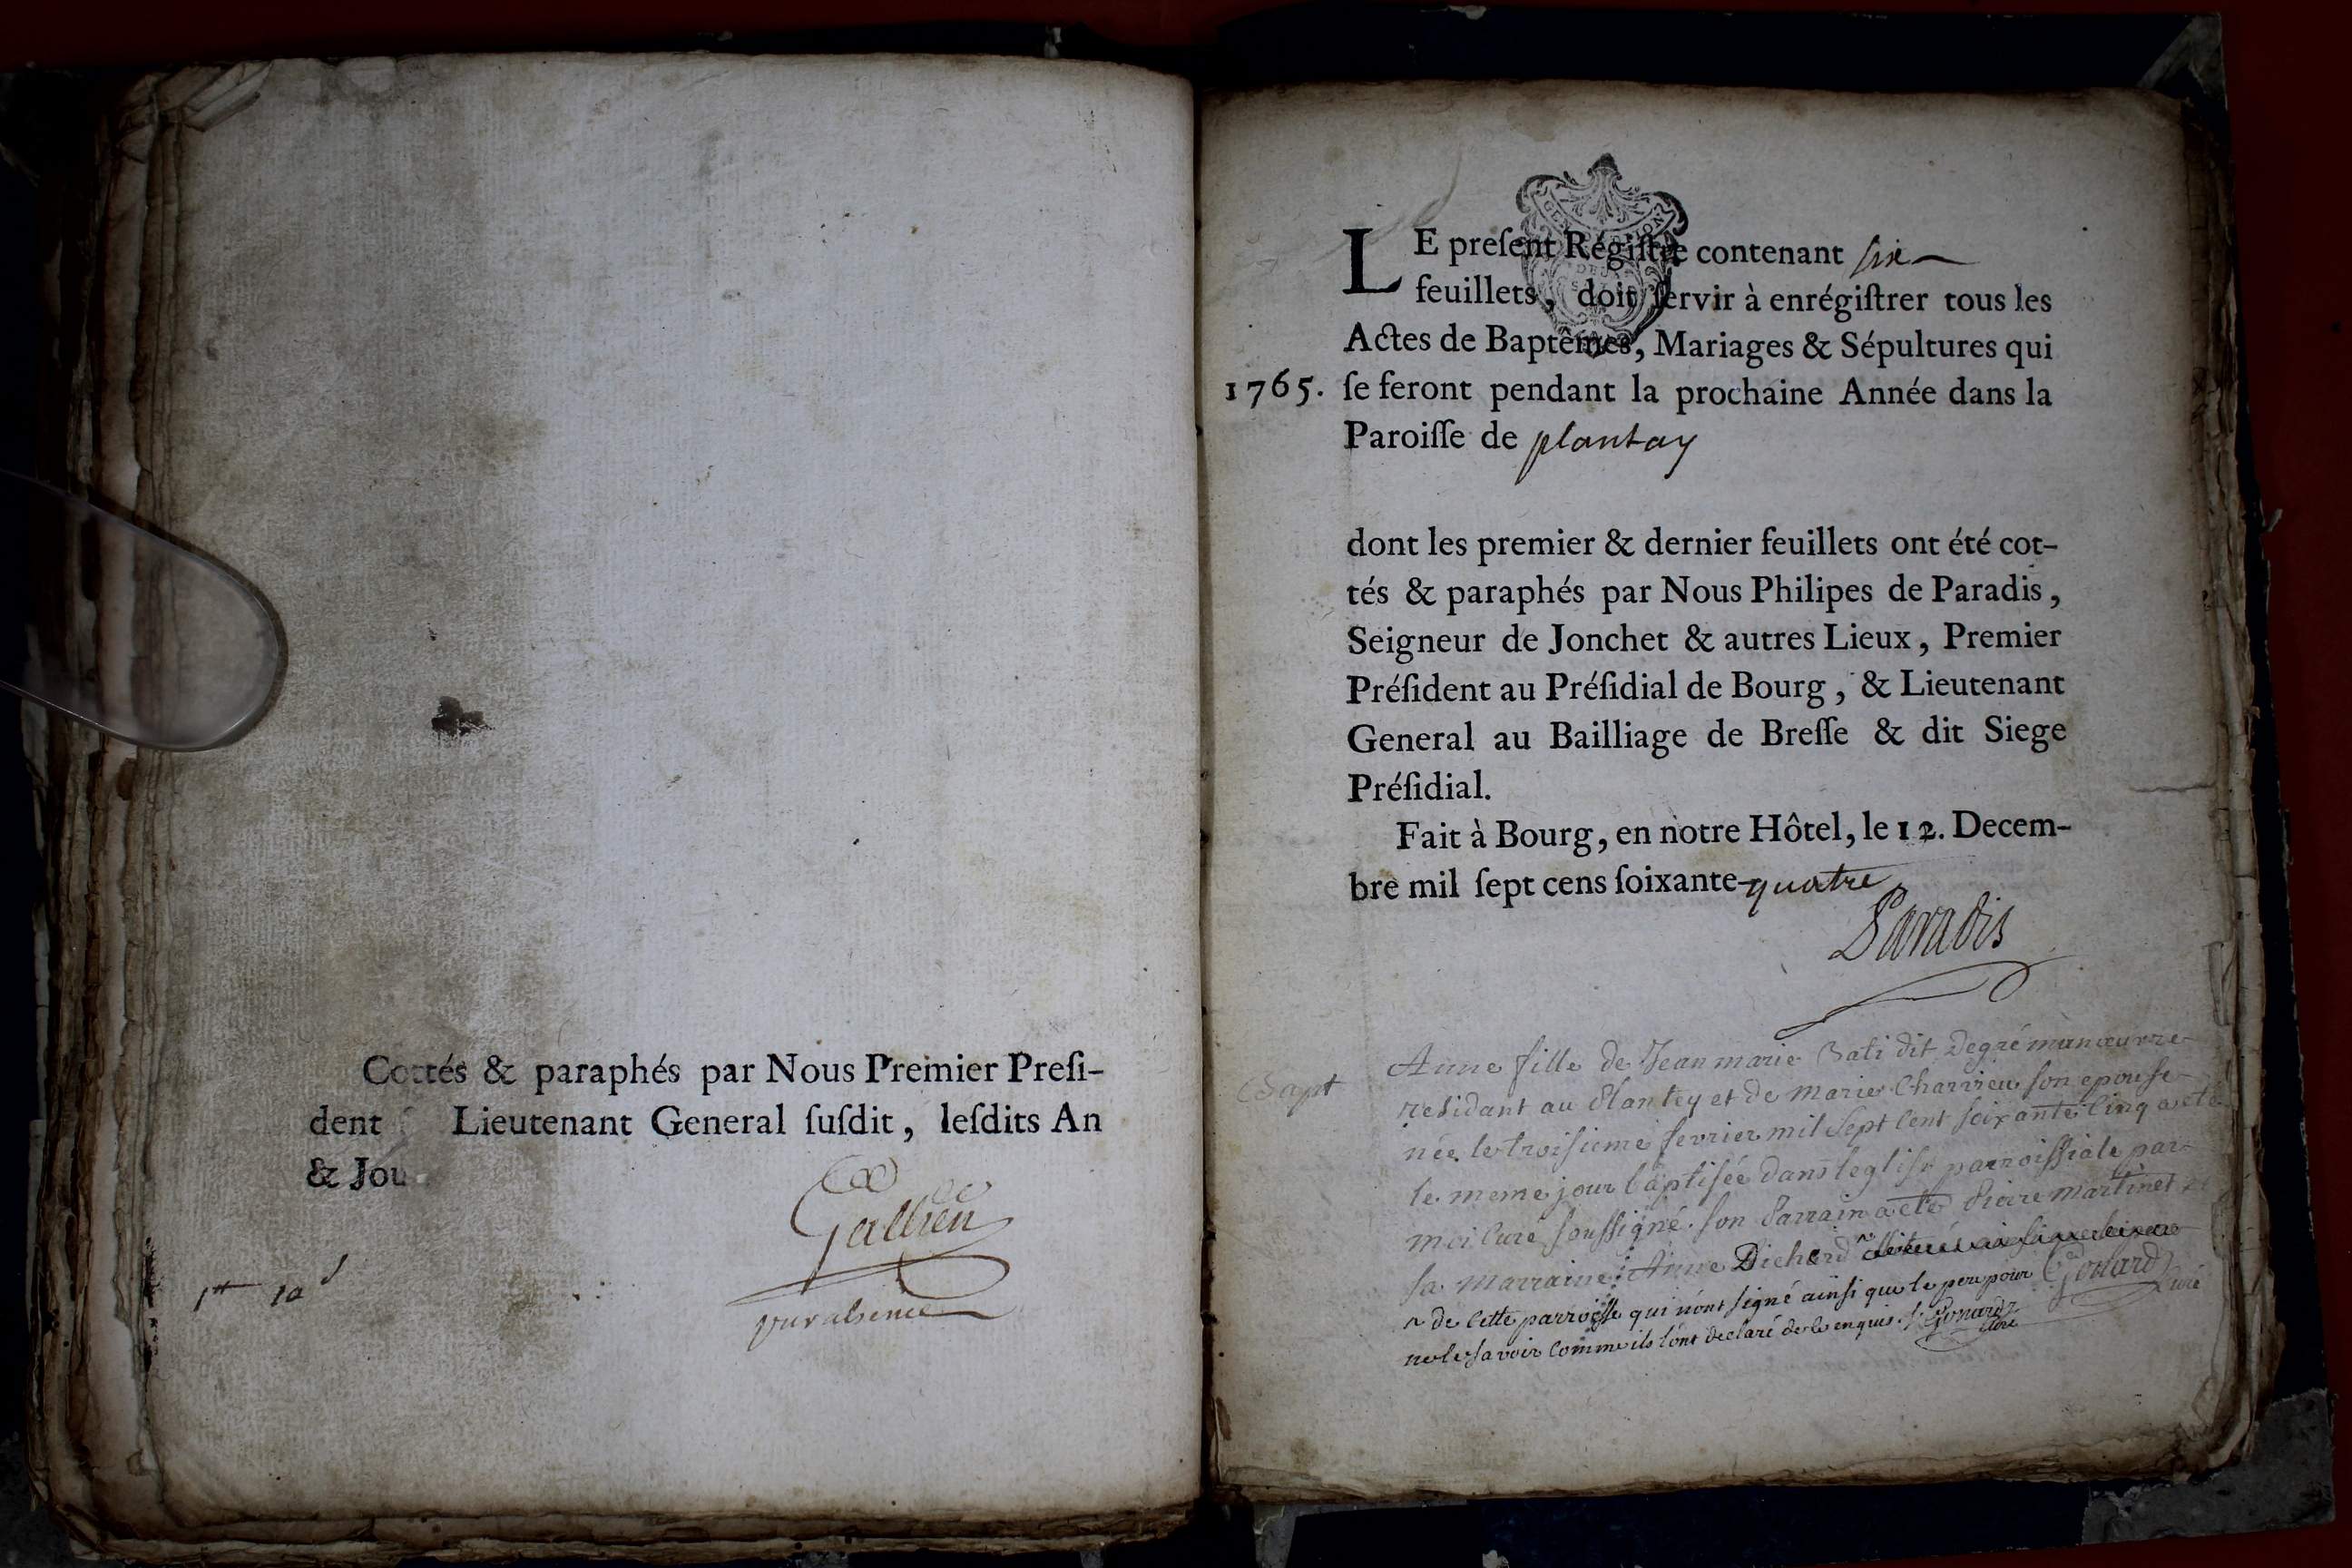 Cottés & paraphés par Nous Premier Preſi-
dent Lieutenant General ſuſdit, leſdits An
& Jou
Gallien
pur absence
1er 10d
LE preſent Régiſtre contenant six
feuillets, doit ſervir à enrégiſtrer tous les
Actes de Baptêmes, Mariages & Sépultures qui
1765. ſe feront pendant la prochaine Année dans la
Paroiſſe de plantay
dont les premier & dernier feuillets ont été cot-
tés & paraphés par Nous Philipes de Paradis,
Seigneur de Jonchet & autres Lieux, Premier
Préſident au Préſidial de Bourg, & Lieutenant
General au Bailliage de Breſſe & dit Siege
Préſidial.
Fait à Bourg, en notre Hôtel, le 12. Decem-
bre mil ſept cens ſoixante-quatre
Paradis
Bapt
Anne fille de Jean marie Bati dit Degré manœuvre
residant au Plantey et de marie Charvieu son epouse
née le troisieme fevrier mil sept cent soixante cinq a eté
le meme jour baptisée dans leglise parroissiale par
moi curé soussigné. son Parrain a eté Pierre martinet
sa marraine Anne Dichard
de cette parroisse qui n'ont signé ainsi que le pere pour Gouard Curé
ne le savoir comme ils l'ont declaré de ce enquis. Gouard
Curé